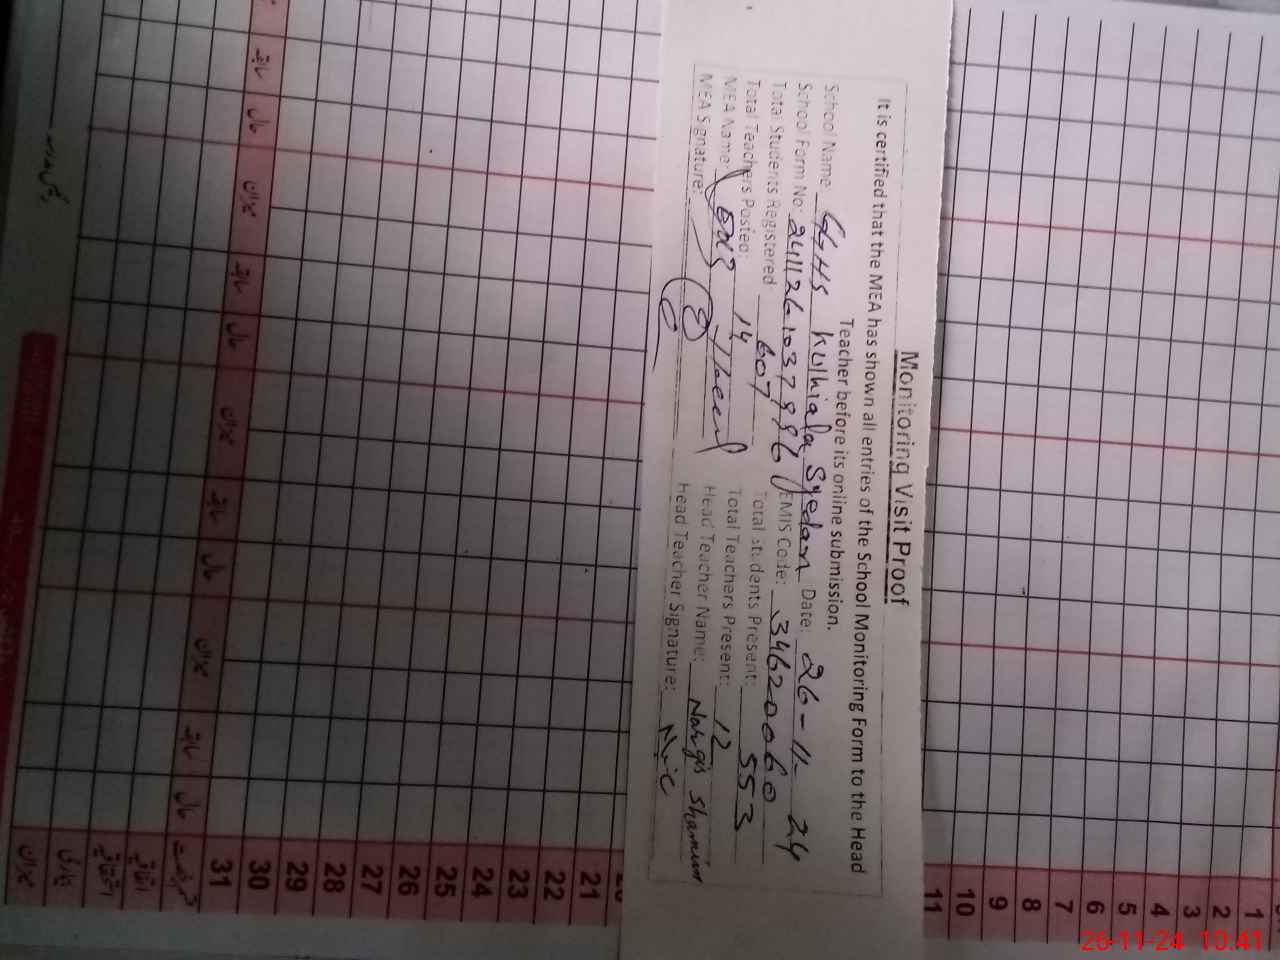 Monitoring Visit Proof
It is certified that the MEA has shown all entries of the School Monitoring Form to the Head
Teacher before its online submission.
School Name: GGHS Kulhiala Syedan Date: 26-11-24
School Form No: EMIS Code: 34620060
Total Students Registered: 607 Total Students Present: 553
Total Teachers Posted: 14 Total Teachers Present: 12
MEA Name: Head Teacher Name: Nargis Shamim
MEA Signature: Head Teacher Signature:
1
2
3
4
5
6
7
8
9
10
11
21
22
23
24
25
26
27
28
29
30
31
میزان حال سابقہ میزان حال سابقہ میزان حال سابقہ میزان حال سابقہ
میزان
26-11-24 10:41